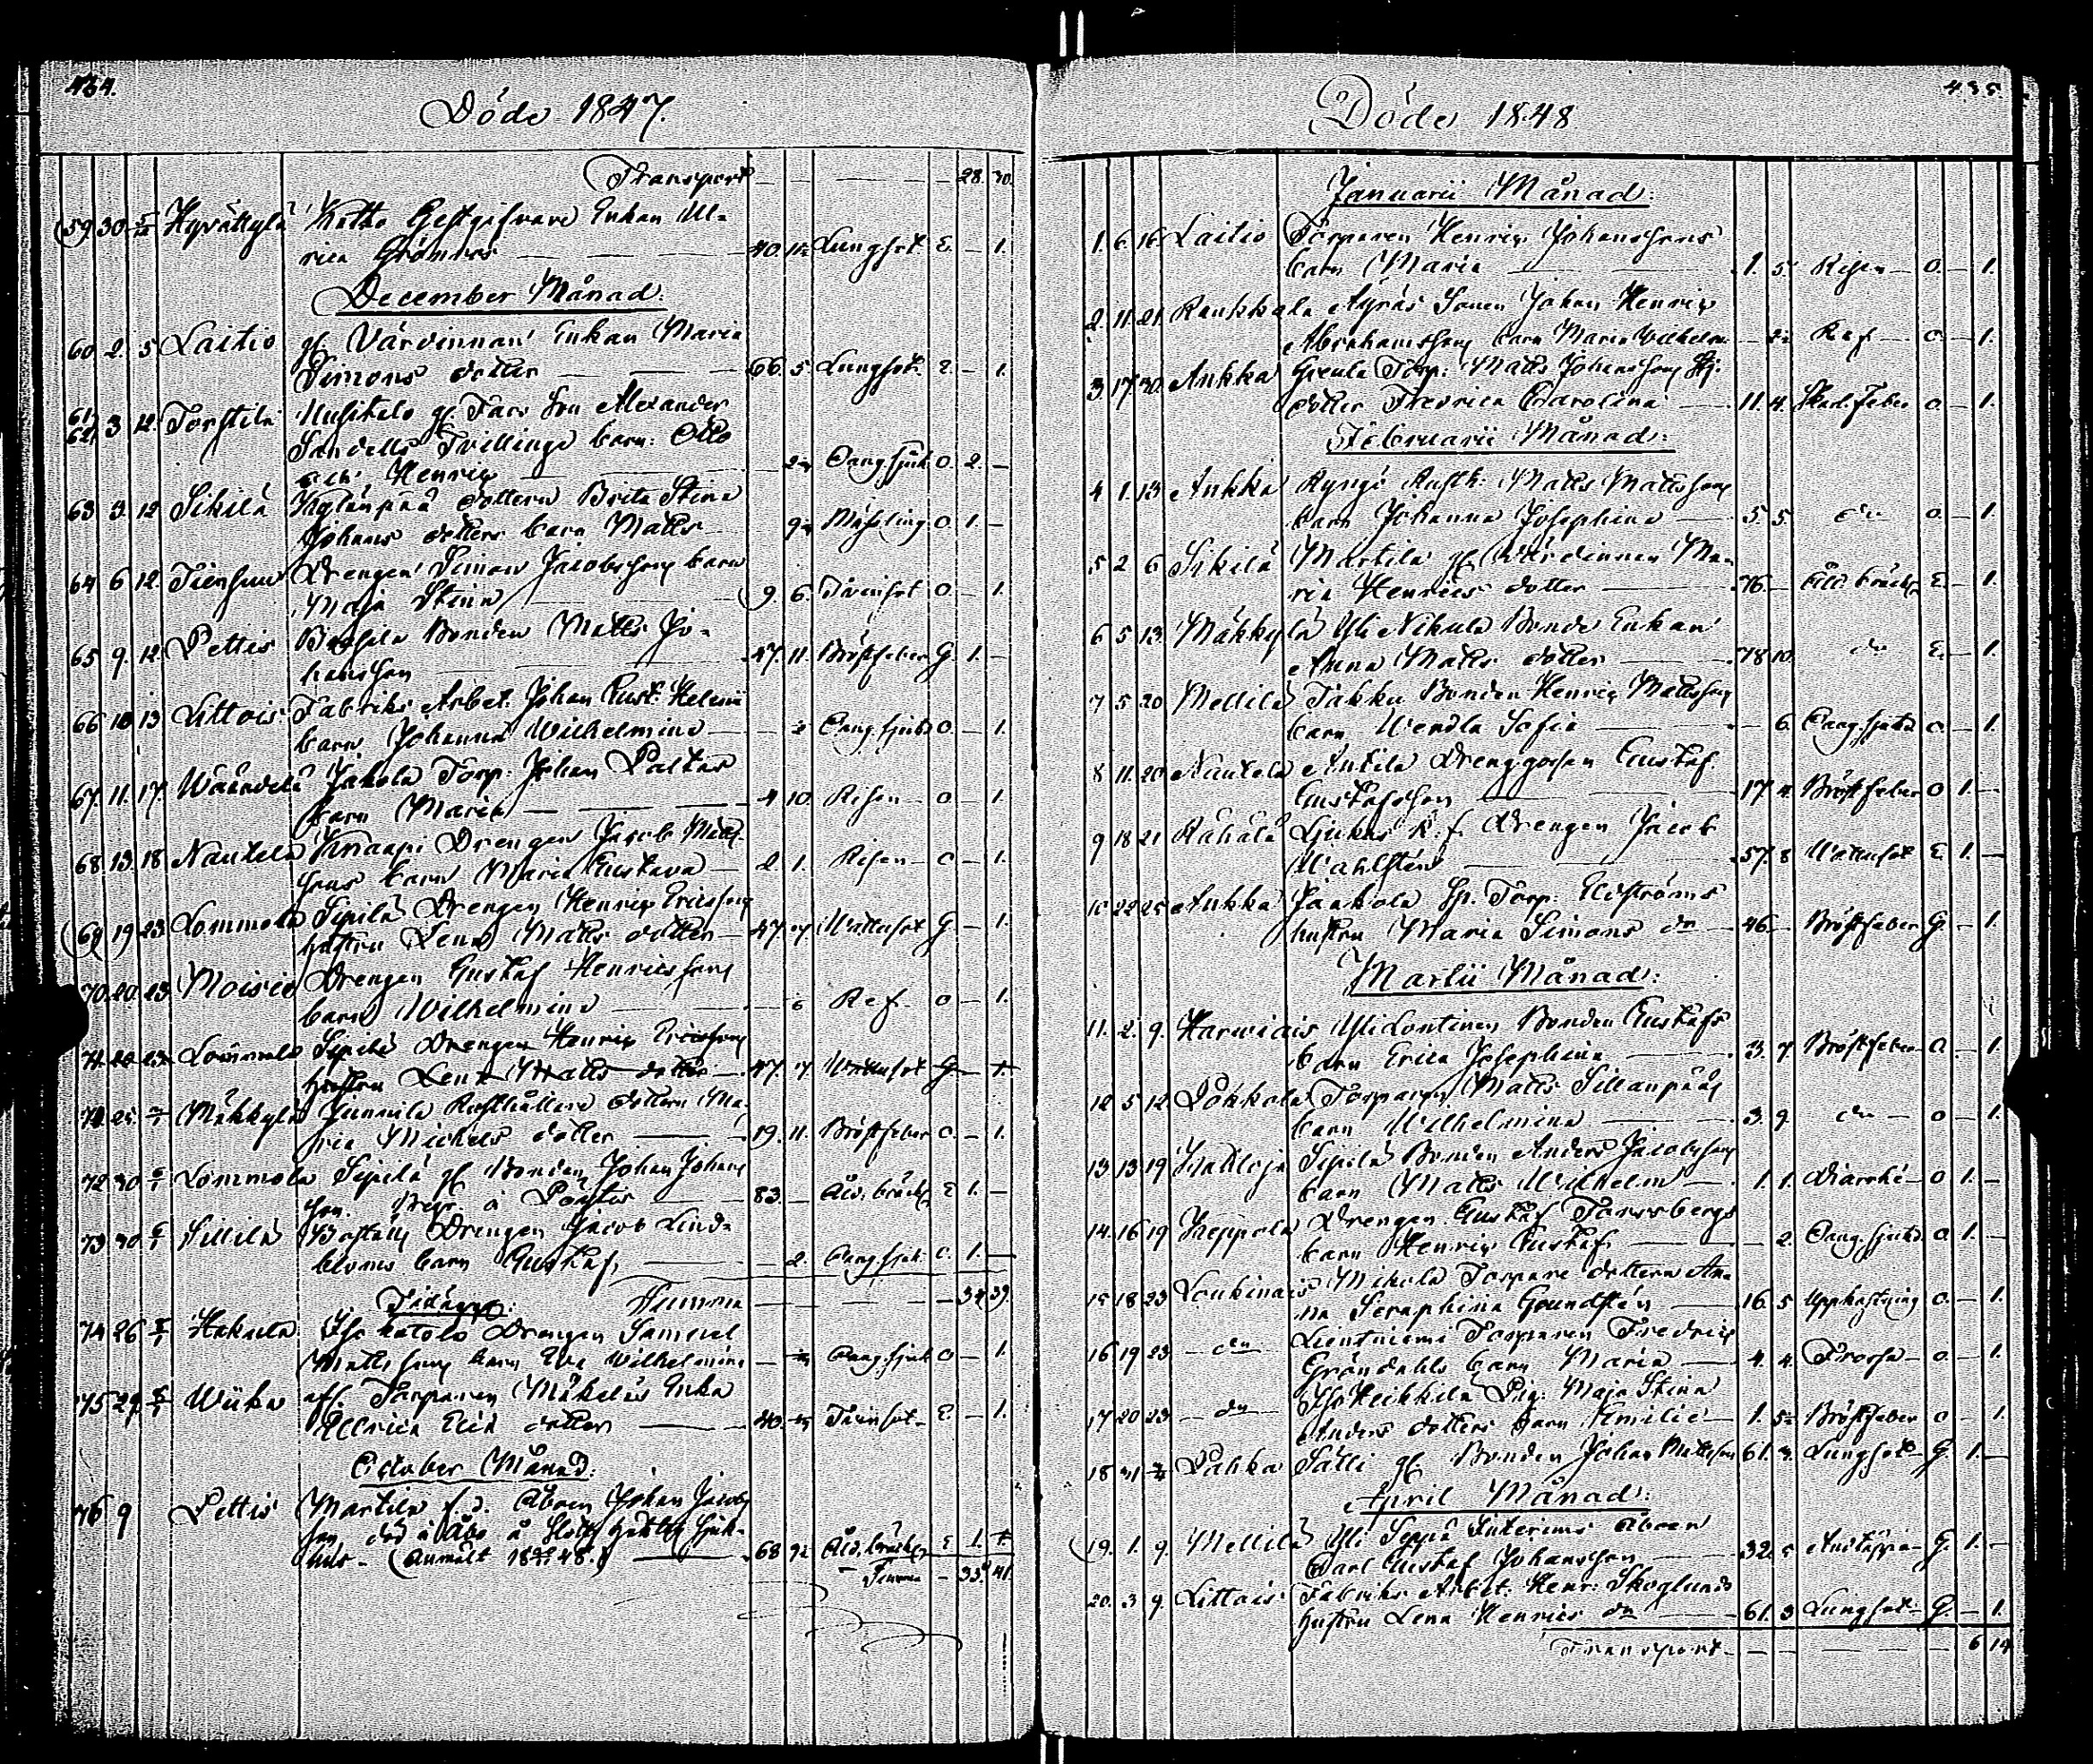 434.
Döde 1847.
Transport — — — — 28. 30.
59 30 5/12 Hyvättylä Kotto Gestgifvare Enkan Ul-
rica Grönroos — — 40. Lungsot E. — 1.
December Månad.
60 2. 5 Laitio gl. Värdinnan Enkan Maria
Simons dotter — — 66. 5. Lungsot. E. — 1.
61. 62. 3 12. Torstila gl. Alexander
Sandells Tvillinge barn: Otto
och Henric — — Oang. sjuk O. 2. —
63 3. 12 Sikilä dottern Brita Stina
Johans dotters barn Matts — Mässling O 1. —
64 6 12. Drengen Simon Jacobssons barn
Maja Stina — 9. 6. Tvinsot O — 1.
65 9. 12. Pettis Bonden Matts Jo-
hansson — 47. 11. Bröstfeber G. 1. —
66 10 13 Littois Fabriks Arbet. Johan Gust.
barn Johanna Wilhelmina — Oang. sjukd O. — 1.
67. 11. 17. Jakola Torp. Johan
barn Maria — 4 10. Risen — O — 1.
68. 13. 18 Nautela Knaapi Drengen Jacob Matts-
sons barn Maria Gustava — 2. 1. Risen — O — 1.
69 19 23 Lommola Sipilä Drengen Henric Ericsson
hustru Lena Matts dotter — 47. 7. Wattusot G. — 1.
70. 20. 23. Moisio Drengen Gustaf Henricssons
barn Wilhelmina — 6 Ref. O — 1.
71. 20 23. Lommola Sipilä Drengen Henric Ericsson
hustru Lena Matts dotter — 47. 7. Wattusot G. — 1.
71. 25. Mäkkylä Junnila Rusthållare dottern Ma-
ria Michels dotter — 19. 11. Bröstfeber O. — 1.
72. 30 6/1 Lommola Sipilä gl. Bonden Johan Johans
son. — 83. — Åld. bräckl. E 1. —
73 30 6/1 Sillilä Drengen Jacob Lind-
bloms barn Gustaf — 2. Oang. sjuk. O. 1. —
Summa — — — 34 39.
Tillägg:
74 26 Hakula Drengen Samuel
Mattssons barn Eva Wilhelmina — Oang. sjuk O — 1.
75 29 Wiika afl. Torparen Mäkeläs Enka
Ullrica dotter — 40. Tvinsot — E — 1.
October Månad.
76 9 Pettis Martila f. d. Åboen Johan Jacobs
son, död i Åbo å Slotts Sjuk-
hus — (Anmält 48.) — 68 Åld. bräckl. E 1. 1.
Summa — 35. 41.
435.
Döde 1848
Januarii Månad:
1. 6 16 Laitio Torparen Henric Johanssons
barn Maria — 1. 5. Risen — O. — 1.
2. 11. 21. Raukkala Äyräs Sonen Johan Henric
Abrahamssons barn Maria Wilhelm. — Ref — O — 1.
3. 17. 30. Aukka Torp: Matts Johanssons
dotter Fredrica Carolina — 11. 4. Skarl. Feber O. — 1.
Februarii Månad:
4 1. 13 Aukka Rusth: Matts Mattssons
barn Johanna Josephina — 5. 5. do O. — 1.
5 2 6 Sikilä Martila gl. Wärdinnan Ma-
ria Henrics dotter — 76. — Åld. bräckl. E. — 1.
6 5 13. Mäkkylä Yli Nikula Bonde Enkan
Anna Matts dotter — 78. 10. do E. — 1.
7 5 20 Mellilä Takku Bonden Henric Mattssons
barn Wendla Sofia — 6. Oang. sjukd O — 1.
8 11. 20 Nautela Anttila Drenggossen Gustaf
Gustafsson — 17 4. Bröstfeber O 1. —
9 18 21 Rähälä Drengen Jacob
Wahlstén — 57. 8. Wattusot E 1. —
10 22 25 Aukka Jaakola Torp. Elfströms
hustru Maria Simons dr — 46. — Bröstfeber G. — 1.
Martii Månad:
11. 2. 9. Karwiais Yli Bonden Gustafs
barn Erica Josephina — 3. 7. Bröstfeber O. — 1.
12 5 12 Pokkola Torparen Matts Sillanpääs
barn Wilhelmina — 3. 9. do — O — 1.
13 13 19 Sipilä Bonden Anders Jacobssons
barn Matts Wilhelm — 1. 1. Diarrhé — O 1. —
14. 16 19 Keppola Drengen Gustaf
barn Henric Gustaf — 2. Oang. sjukd. O 1. —
15 18 23 Loukinais Mikola Torpare dottern An-
na Seraphina Grundstén — 16. 5 Uppkastning O. — 1.
16 19 23 — do — Torparen Fredric
Gröndahls barn Maria — 4. 4. Frossa — O. — 1.
17 20 23 — do — Isoheikkilä Pig: Maja Stina
Anders dotters barn Amilie — 1. 5 Bröstfeber O — 1.
18 31 Pahka Sälli gl. Bonden Johan Mattsson 61. Lungsot — G. 1. —
April Månad:
19. 1. 9. Mellilä Yli Seppä Interims Åboen
Carl Gustaf Johansson — 32. Andtäppa — G. 1. —
20. 3 9. Littois Fabriks Arbet: Henr: Skoglunds
hustru Lena Henrics dr — 61. 3 Lungsot — G. — 1.
Transport — — — — 6 14